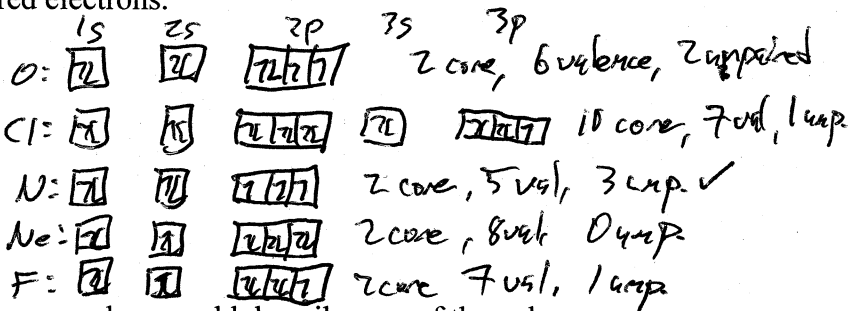 red electrons.
1s 2s 2p 3s 3p
O: 2 core, 6 valence, 2 unpaired
Cl: 10 core, 7 val, 1 unp.
N: 2 core, 5 val, 3 unp. ✓
Ne: 2 core, 8 val 0 unp.
F: 2 core 7 val, 1 unp.